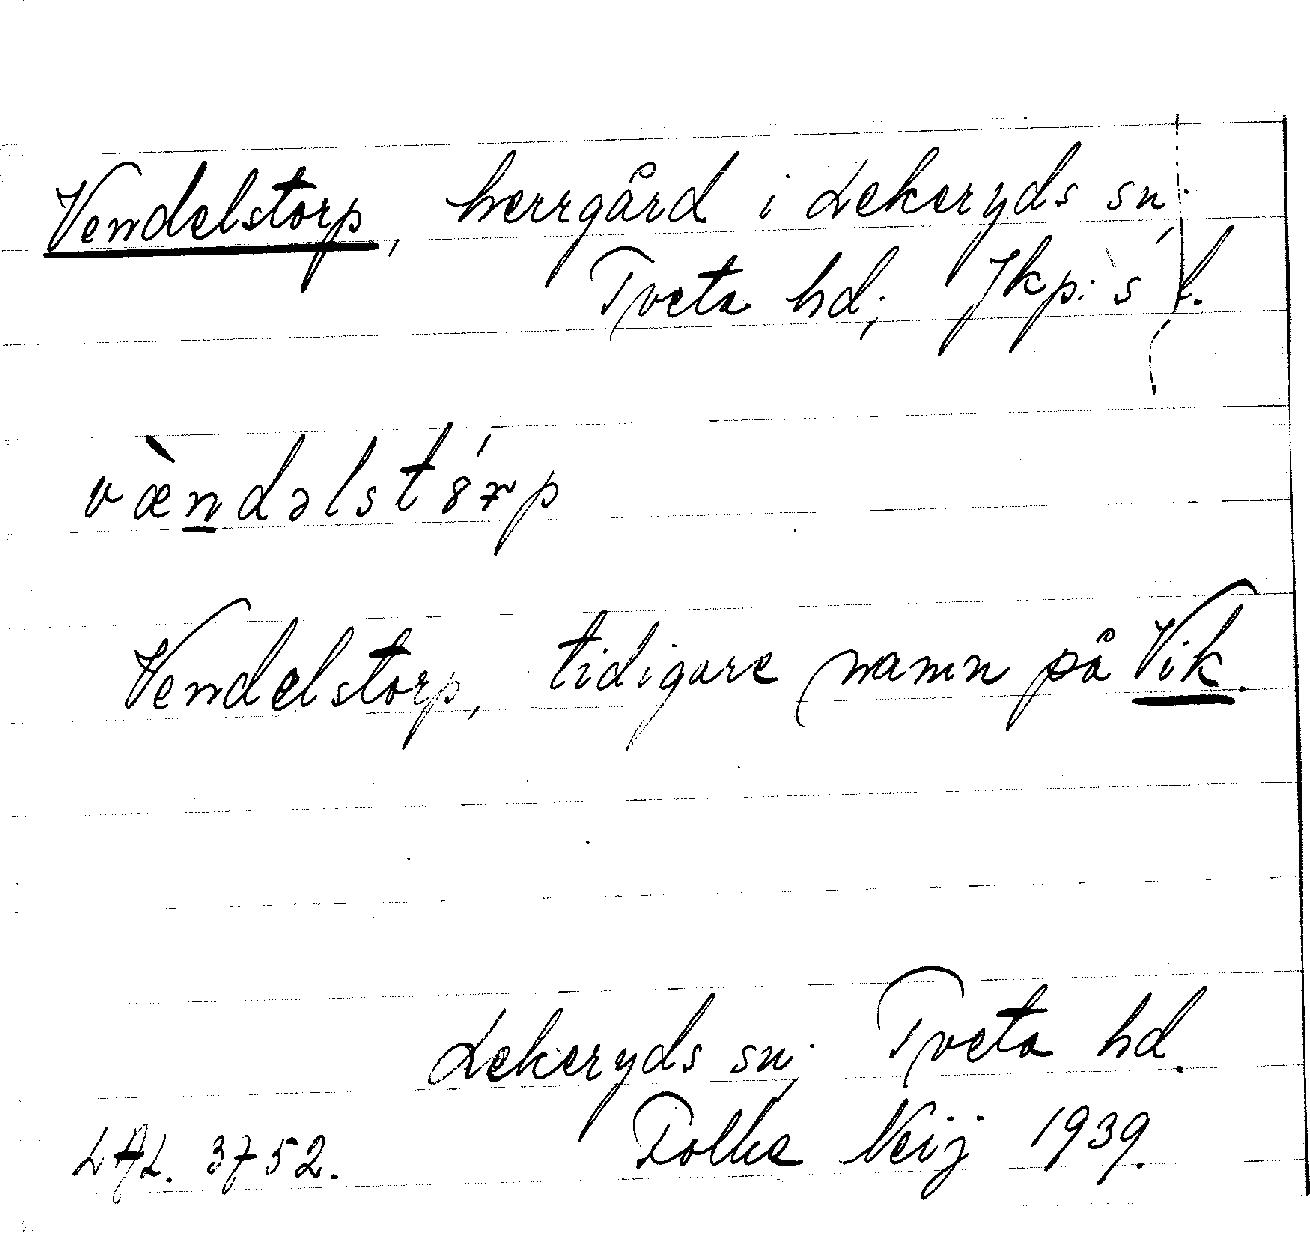 Vendelstorp, herrgård i Lekeryds sn;
Tveta hd; Jkp:s l.
vændəlst8rp
Vendelstorp, tidigare namn på Vik.
Lekeryds sn; Tveta hd.
LAL. 3752. Folke Neij 1939.